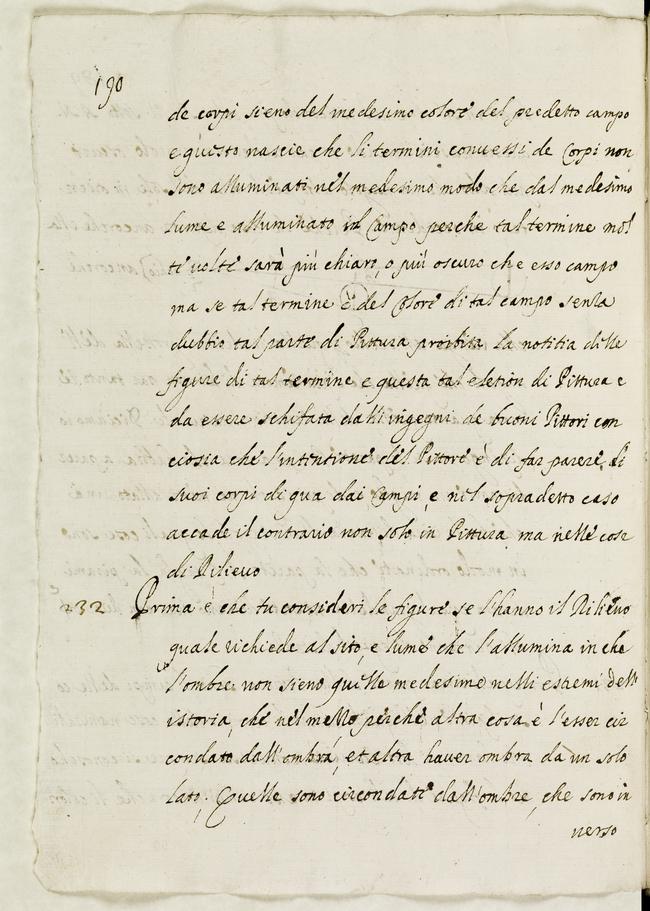 190
de corpi sieno del medesimo colore del predetto campo
e questo nascie che li termini conuessi de Corpi non
sono alluminati nel medesimo modo che dal medesimo
lume e alluminato il Campo perche tal termine mol
te uolte sarà più chiaro, o più oscuro che esso campo
ma se tal termine è del Colore di tal campo senza
dubbio tal parte di Pittura proibira la notitia delle
figure di tal termine e questa tal eletion di Pittura e
da essere schifata dalli ingegni de buoni Pittori con
ciosia che l'intentione del Pittore è di far parere li
suoi corpi di qua dai Campi, e nel sopradetto caso
accade il contrario non solo in Pittura ma nelle cose
di Rilieuo
232 Prima è che tu consideri le figure se l'hanno il Rilieuo
quale richiede al sito, e lume che l'allumina in che
l'ombre non sieno quelle medesime nelli estremi dell
istoria, che nel mezzo perche altra cosa è l'esser cir
condato dall'ombra, et altra hauer ombra da un solo
lato, Quelle sono circondate dall'ombre, che sono in
uerso